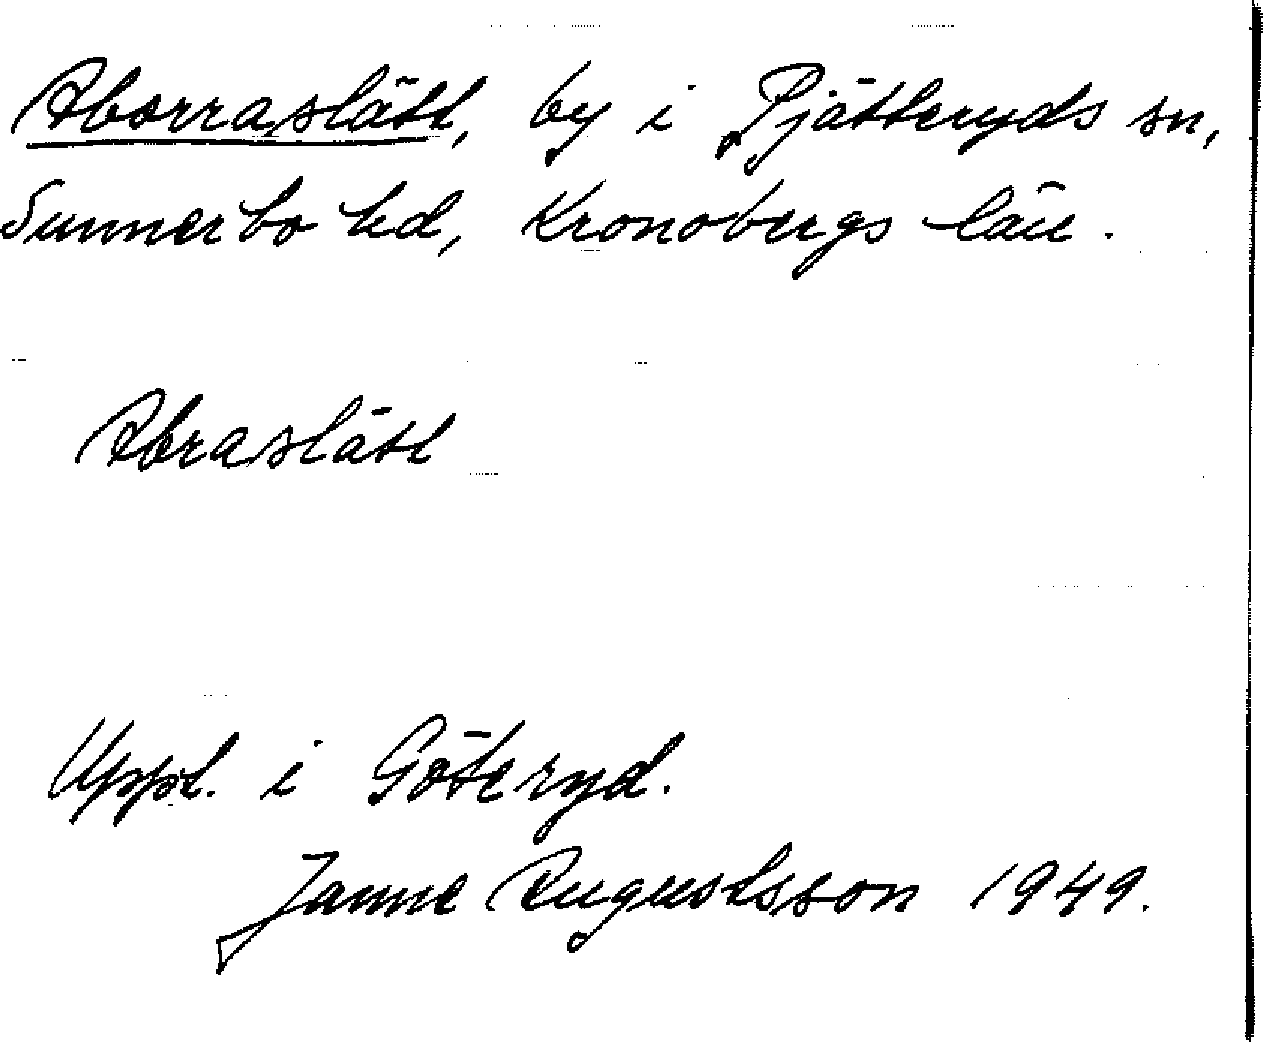 Aborraslätt, by i Pjätteryds sn,
Sunnerbo hd, Kronobergs län.
Abraslätt
Uppt. i Göteryd.
Janne Augustsson 1949.